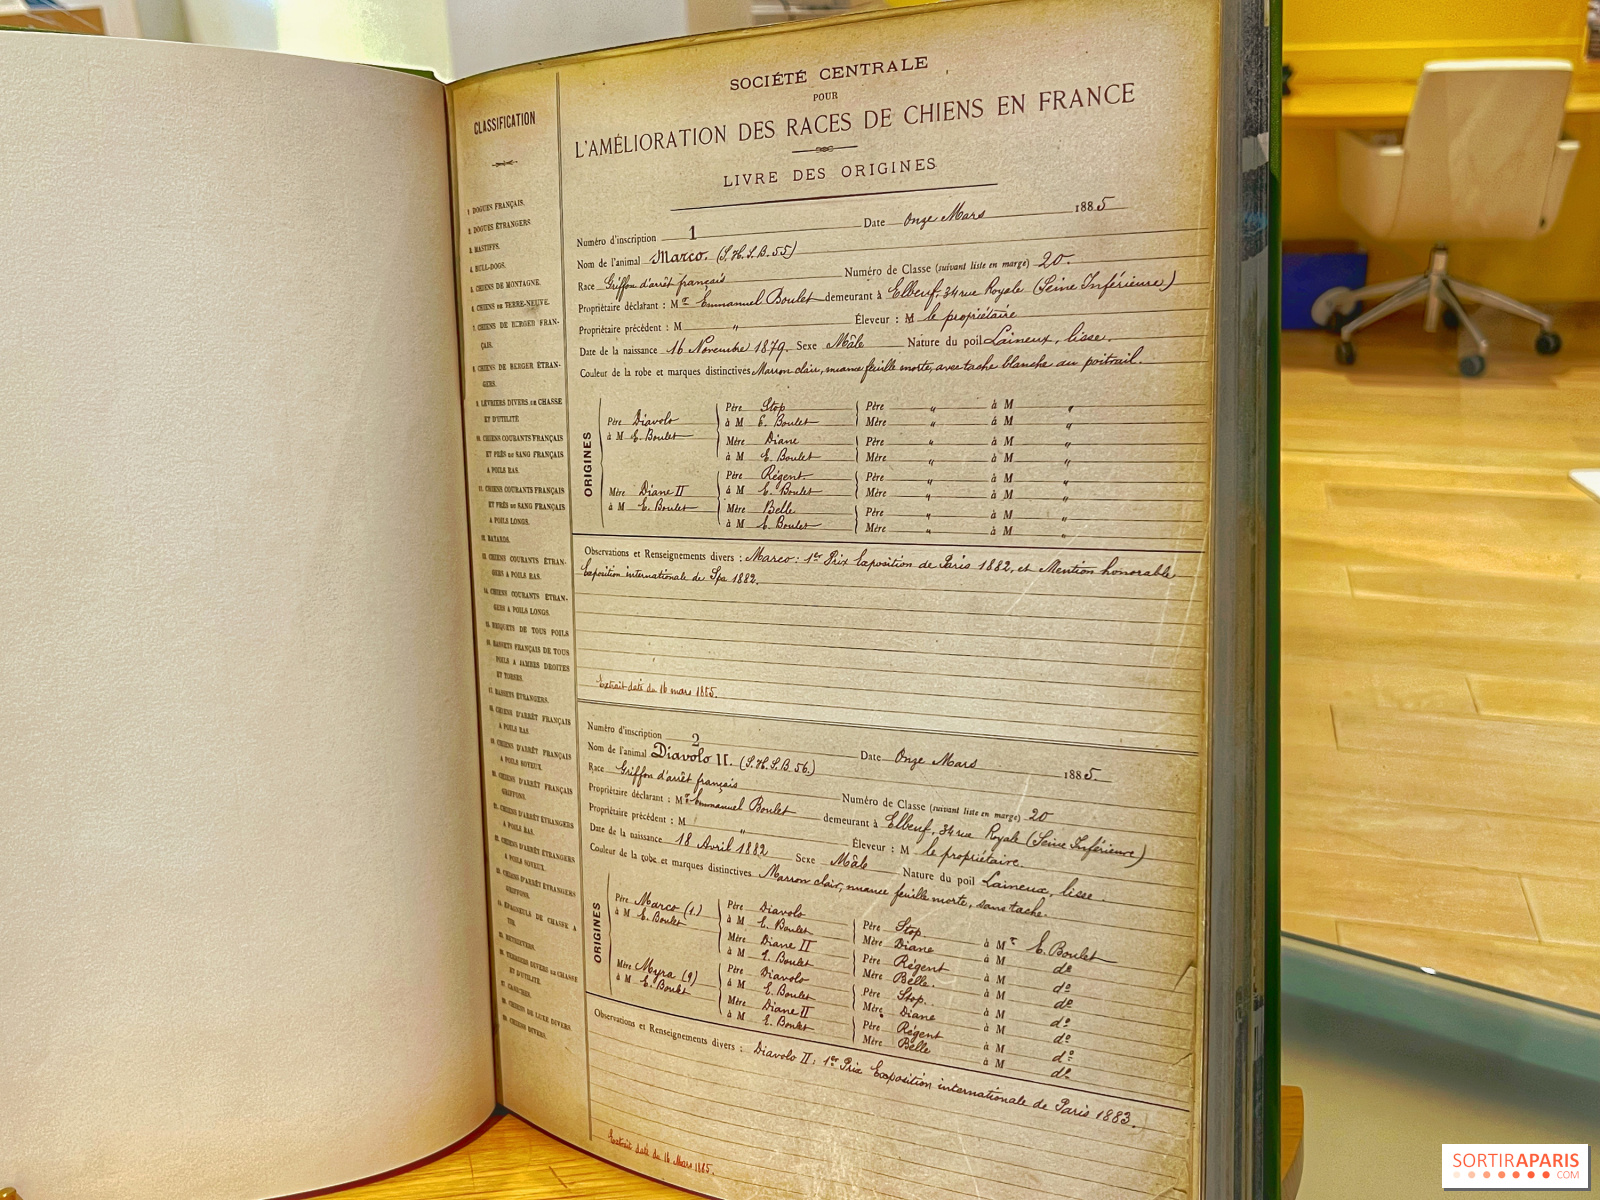 CLASSIFICATION
1. DOGUES FRANÇAIS.
2. DOGUES ÉTRANGERS
3. MASTIFFS.
4. BULL-DOGS.
5. CHIENS DE MONTAGNE.
6. CHIENS DE TERRE-NEUVE.
7. CHIENS DE BERGER FRAN-
ÇAIS.
8. CHIENS DE BERGER ÉTRAN-
GERS.
9. LÉVRIERS DIVERS DE CHASSE
ET D'UTILITÉ
10. CHIENS COURANTS FRANÇAIS
ET PRÈS DU SANG FRANÇAIS
A POILS RAS.
11. CHIENS COURANTS FRANÇAIS
ET PRÈS DU SANG FRANÇAIS
A POILS LONGS.
12. BATARDS.
13. CHIENS COURANTS ÉTRAN-
GERS A POILS RAS.
14. CHIENS COURANTS ÉTRAN-
GERS A POILS LONGS.
15. BRIQUETS DE TOUS POILS
16. BASSETS FRANÇAIS DE TOUS
POILS A JAMBES DROITES
ET TORSES.
17. BASSETS ÉTRANGERS.
18. CHIENS D'ARRÊT FRANÇAIS
A POILS RAS
19. CHIENS D'ARRÊT FRANÇAIS
A POILS SOYEUX.
20. CHIENS D'ARRÊT FRANÇAIS
GRIFFONS.
21. CHIENS D'ARRÊT ÉTRANGERS
A POILS RAS.
22. CHIENS D'ARRÊT ÉTRANGERS
A POILS SOYEUX.
23. CHIENS D'ARRÊT ÉTRANGERS
GRIFFONS.
24. ÉPAGNEULS DE CHASSE A
TIR.
25. RETRIEVERS.
26. TERRIERS DIVERS DE CHASSE
ET D'UTILITÉ
27. CANICHES.
28. CHIENS DE LUXE DIVERS.
29. CHIENS DIVERS.
SOCIÉTÉ CENTRALE
POUR
L'AMÉLIORATION DES RACES DE CHIENS EN FRANCE
LIVRE DES ORIGINES
Numéro d'inscription 1 Date Onze Mars 1885
Nom de l'animal Marco. (S.H.S.B. 55)
Race Griffon d'arrêt français Numéro de Classe (suivant liste en marge) 20.
Propriétaire déclarant : Mr Emmanuel Boulet demeurant à Elbeuf, 34 rue Royale (Seine Inférieure)
Propriétaire précédent : M " Éleveur : M le propriétaire
Date de la naissance 16 Novembre 1879. Sexe Mâle Nature du poil Laineux, lisse.
Couleur de la robe et marques distinctives Marron clair, nuance feuille morte, avec tache blanche au poitrail.
ORIGINES
Père Diavolo
à M E. Boulet
Mère Diane II
à M E. Boulet
Père Stop
à M E. Boulet
Mère Diane
à M E. Boulet
Père Régent.
à M E. Boulet
Mère Belle
à M E. Boulet
Père " à M "
Mère " à M "
Père " à M "
Mère " à M "
Père " à M "
Mère " à M "
Père " à M "
Mère " à M "
Observations et Renseignements divers : Marco : 1er Prix Exposition de Paris 1882, et Mention honorable
Exposition internationale de Spa 1882.
Extrait daté du 16 mars 1885.
Numéro d'inscription 2
Nom de l'animal Diavolo II. (S.H.S.B. 56.) Date Onze Mars 1885.
Race Griffon d'arrêt français Numéro de Classe (suivant liste en marge) 20
Propriétaire déclarant : Mr Emmanuel Boulet demeurant à Elbeuf, 34 rue Royale (Seine Inférieure)
Propriétaire précédent : M " Éleveur : M le propriétaire.
Date de la naissance 18 Avril 1882 Sexe Mâle Nature du poil Laineux, lisse.
Couleur de la robe et marques distinctives Marron clair, nuance feuille morte, sans tache.
ORIGINES
Père Marco (1.)
à M E. Boulet
Mère Myra (9)
à M E. Boulet
Père Diavolo
à M E. Boulet
Mère Diane II
à M E. Boulet
Père Diavolo
à M E. Boulet
Mère Diane II
à M E. Boulet
Père Stop. à Mr E. Boulet
Mère Diane à M do
Père Régent à M do
Mère Belle. à M do
Père Stop. à M do
Mère Diane à M do
Père Régent à M do
Mère Belle à M do
Observations et Renseignements divers : Diavolo II : 1er Prix Exposition internationale de Paris 1883.
Extrait daté du 16 Mars 1885.
SORTIRAPARIS
.COM